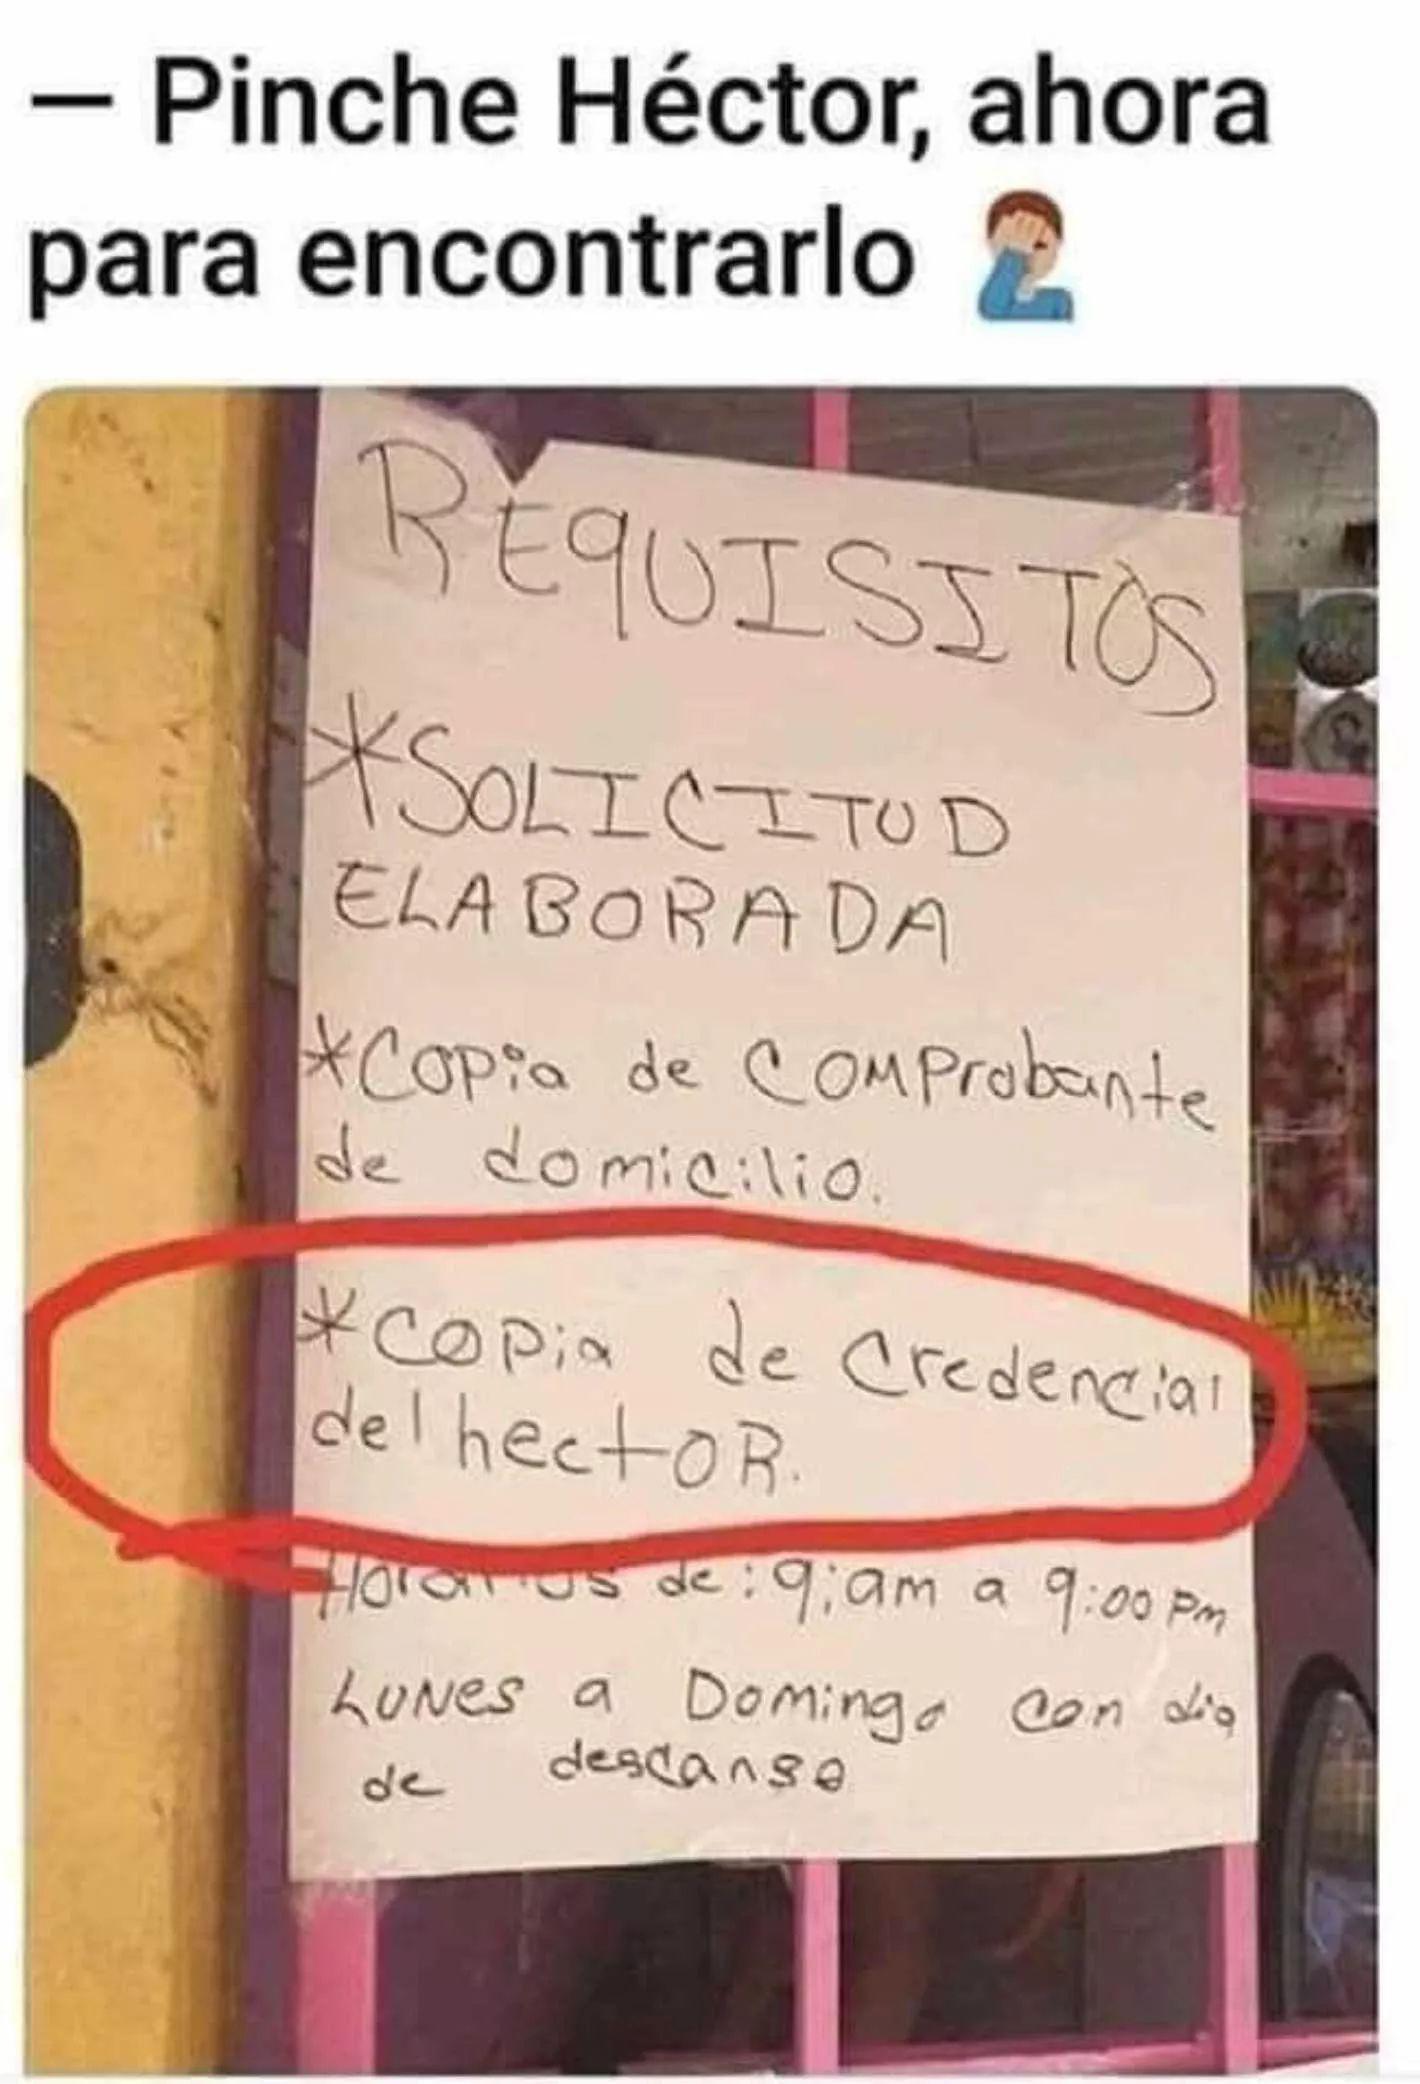 — Pinche Héctor, ahora
para encontrarlo 🤦🏽‍♂️
REQUISITOS
*SOLICITUD
ELABORADA
*Copia de comprobante
de domicilio.
*Copia de credencial
del hectoR.
Horarios de: 9:am a 9:00 pm
Lunes a Domingo con dia
de descanso